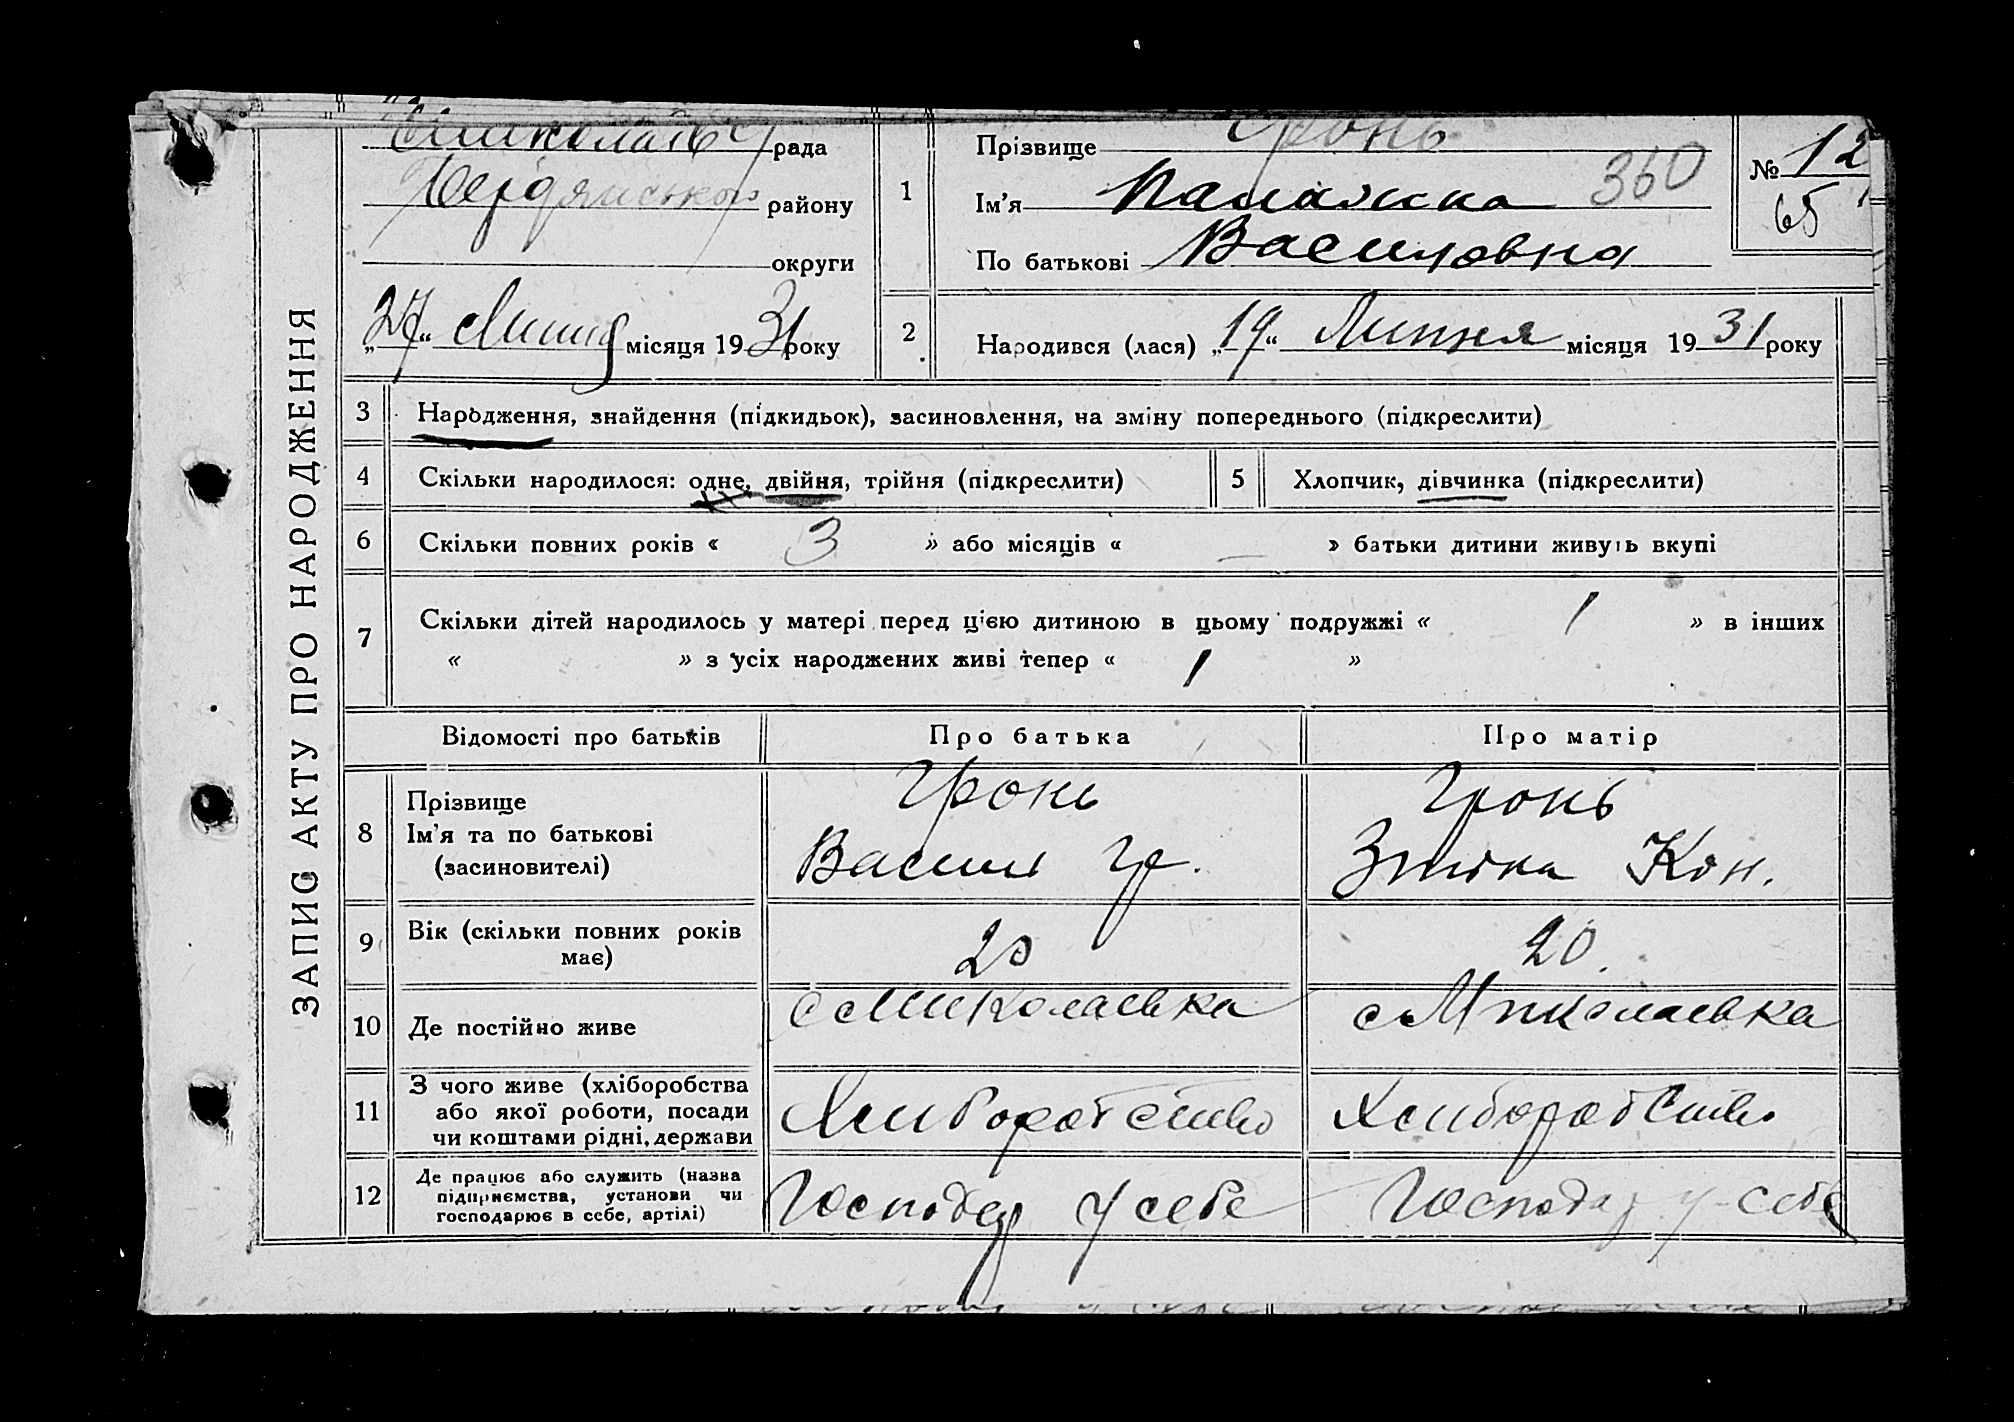 ЗАПИС АКТУ ПРО НАРОДЖЕННЯ
рада
Бердянського району
округи
„27“ Липня місяця 1931 року
1
Прізвище Гронь
Ім’я 360
По батькові Василовна
№ 12
65
2
Народився (лася) „19“ Липня місяця 1931 року
3 Народження, знайдення (підкидьок), засиновлення, на зміну попереднього (підкреслити)
4 Скільки народилося: одне, двійня, трійня (підкреслити) 5 Хлопчик, дівчинка (підкреслити)
6 Скільки повних років « 3 » або місяців « — » батьки дитини живуть вкупі
7 Скільки дітей народилось у матері перед цією дитиною в цьому подружжі « 1 » в інших
« » з усіх народжених живі тепер « 1 »
Відомості про батьків Про батька Про матір
8 Прізвище Гронь Гронь
Ім’я та по батькові Васил Гр. Кон.
(засиновителі)
9 Вік (скільки повних років має) 20 20.
10 Де постійно живе с Миколаевка с Миколаевка
11 З чого живе (хліборобства або якої роботи, посади чи коштами рідні, держави Хлиборобство Хлиборобство
12 Де працює або служить (назва підприємства, установи чи господарює в себе, артілі) Господар у себе Господар у себе